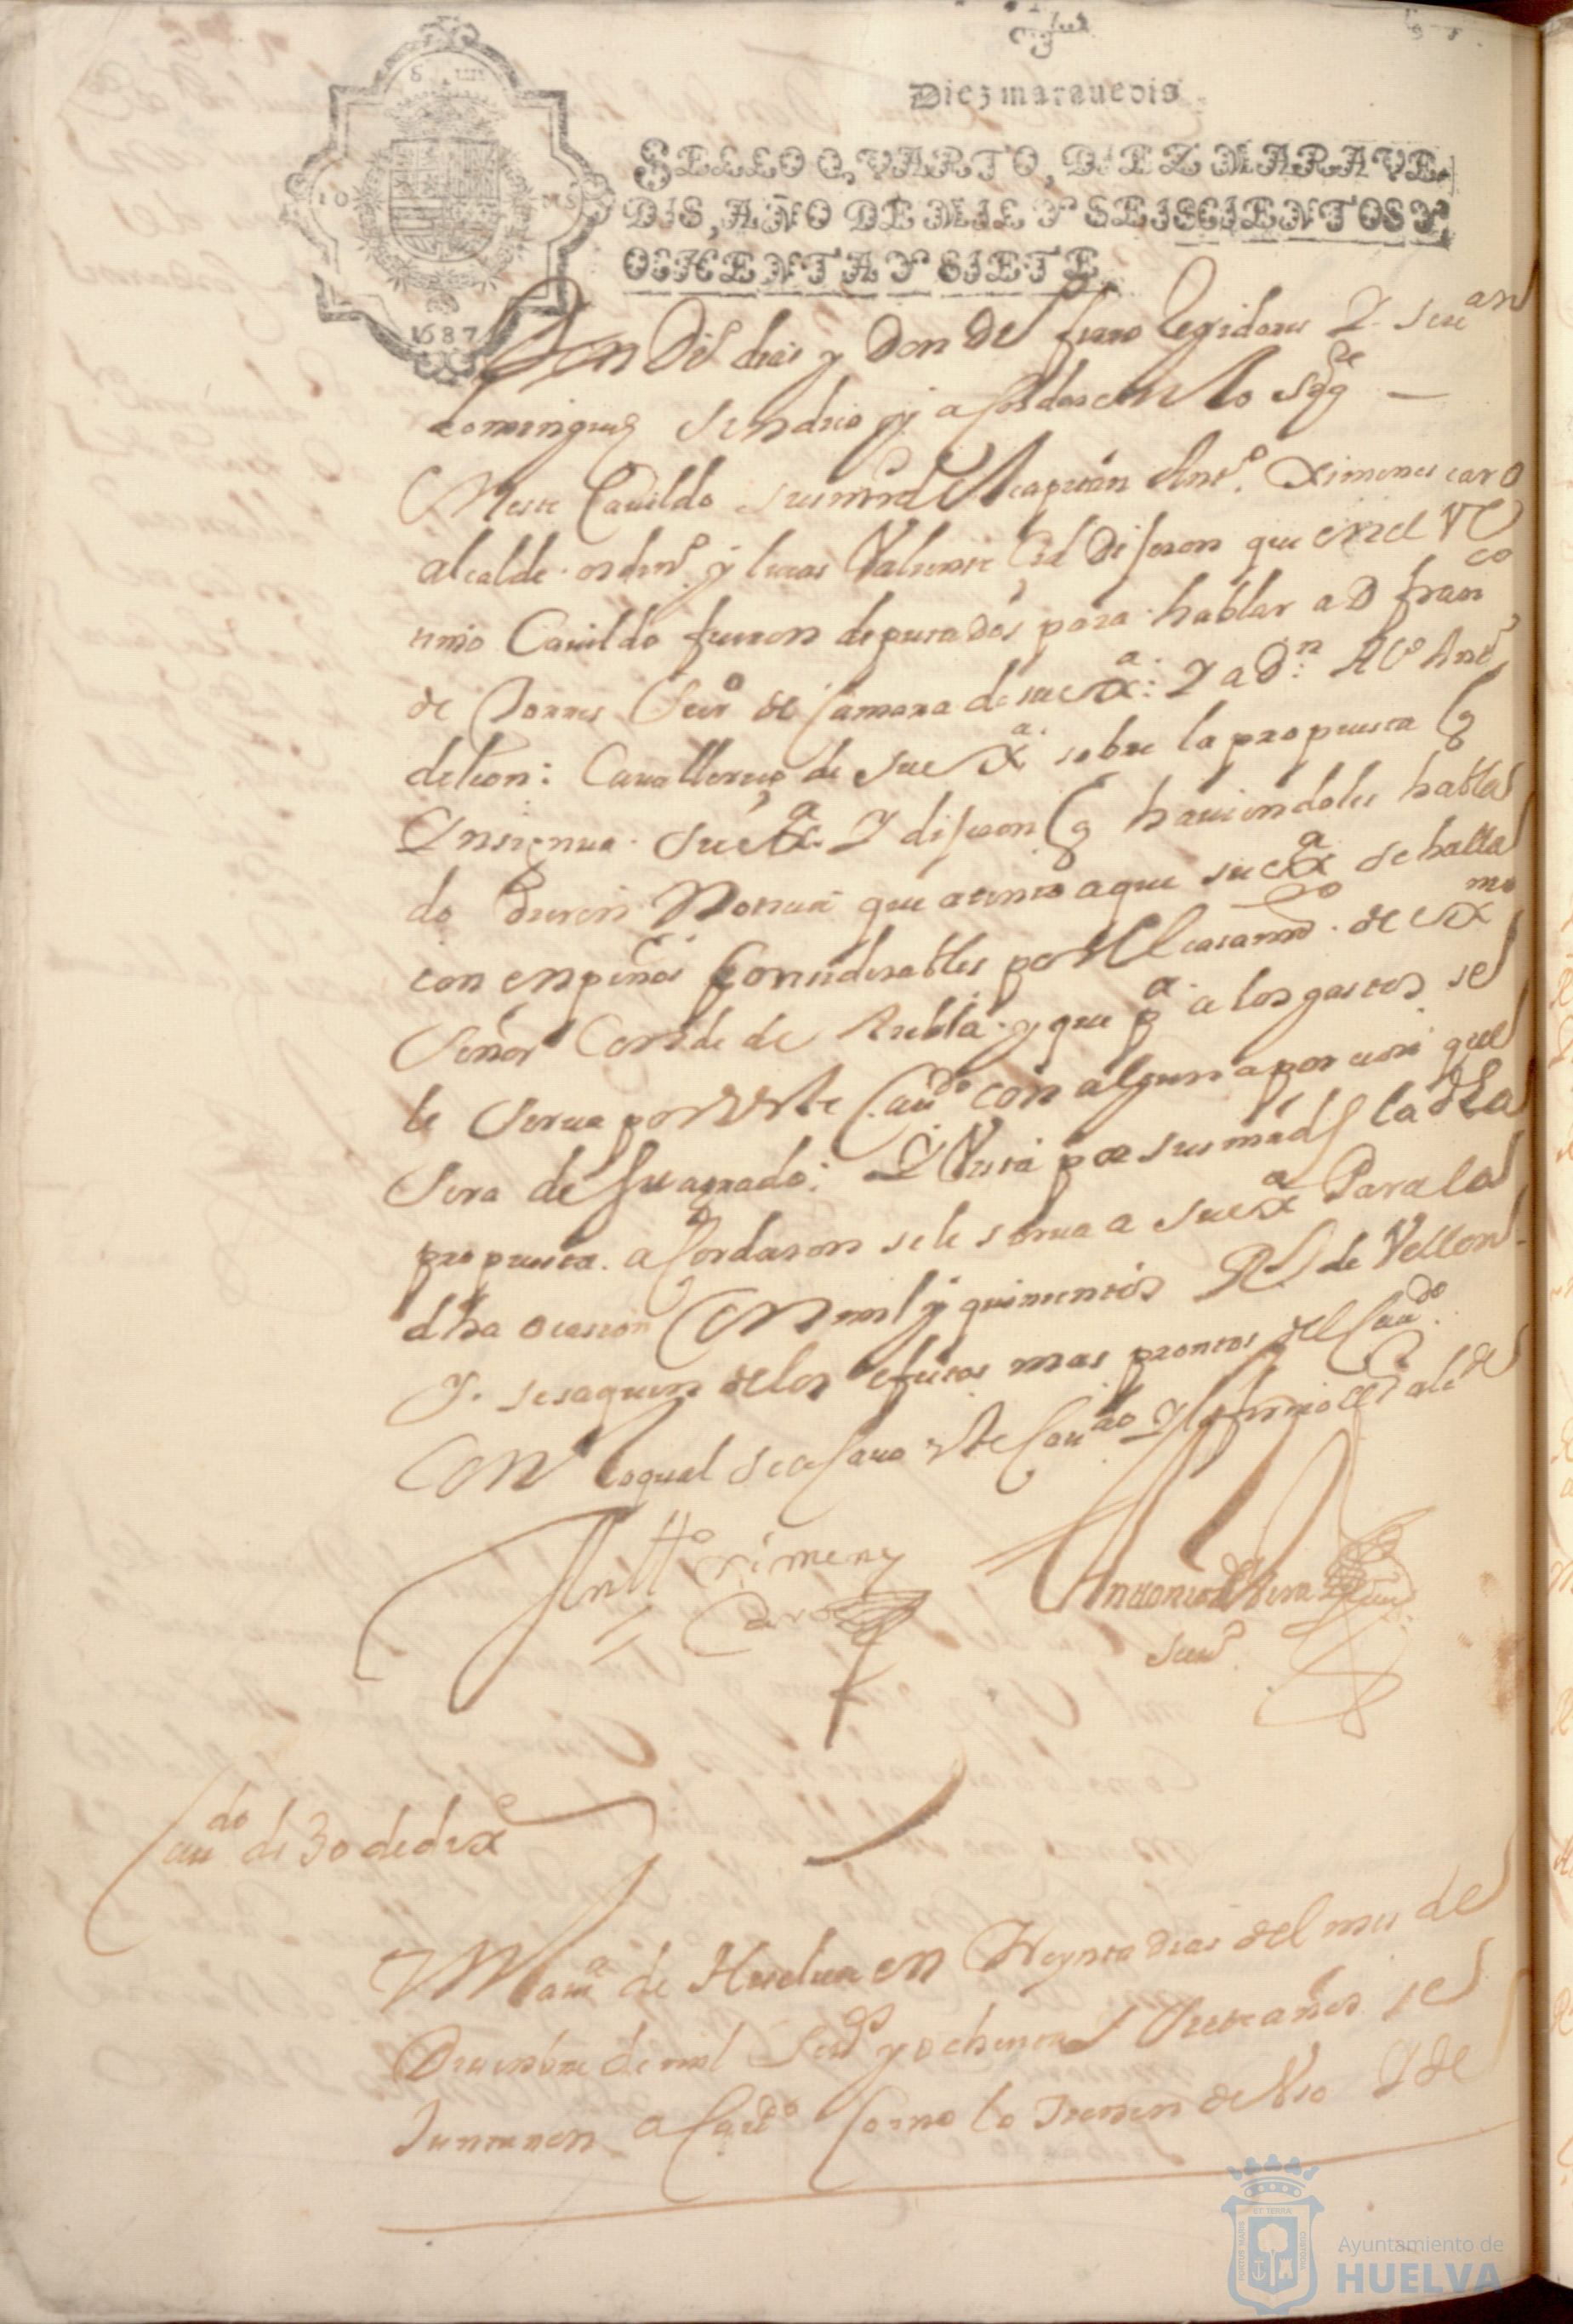 Diez marauedis
SELLO QVARTO, DIEZ MARAVE-
DIS, AÑO DE MIL Y SEISCIENTOS Y
OCHENTA Y SIETE.
1687
y Don regidores Y Seuan
domingues sindico y acordaron lo sigte
Neste Cauildo sus mrds El capitan Antº Ximenes caro
alcalde ordinº y lucas Valiente Cid dijeron que en el Vl
timo Cauildo fueron deputados para hablar a D franco
de Torres Secrº de Camara de su exa: Y a Dn Alº Antº
de leon: Cauallerizo de su exa sobre la propuesta q
Insignua su exa Y dijeron q hauiendoles habla
do que atento a que su exa se halla
con enpeños Considerables por El casamtº de exmo
Señor Conde de Niebla y que pa a los gastos se
le sirua por este Caudo con alguna porcion que
sera de su agrado: Y Vista por sus mrds la dha
propuesta acordaron se le sirua a su exa Para la
dha ocasion Con mil y quinientos Rs de Vellon
Y se saquen de los efectos mas prontos del Caudo
Con lo qual se acauo este Caudo Y lo firmo el sr alcde
Antto ximenez
Caro
Antonio de
scruº
Caudo de 30 de dixe
En la uª de Huelua en Treynta dias del mes de
Diziembre de mil seisos y ochenta y siete años se
Juntaron a Caudo Como lo tienen de Vso Y de
Ayuntamiento de
HUELVA